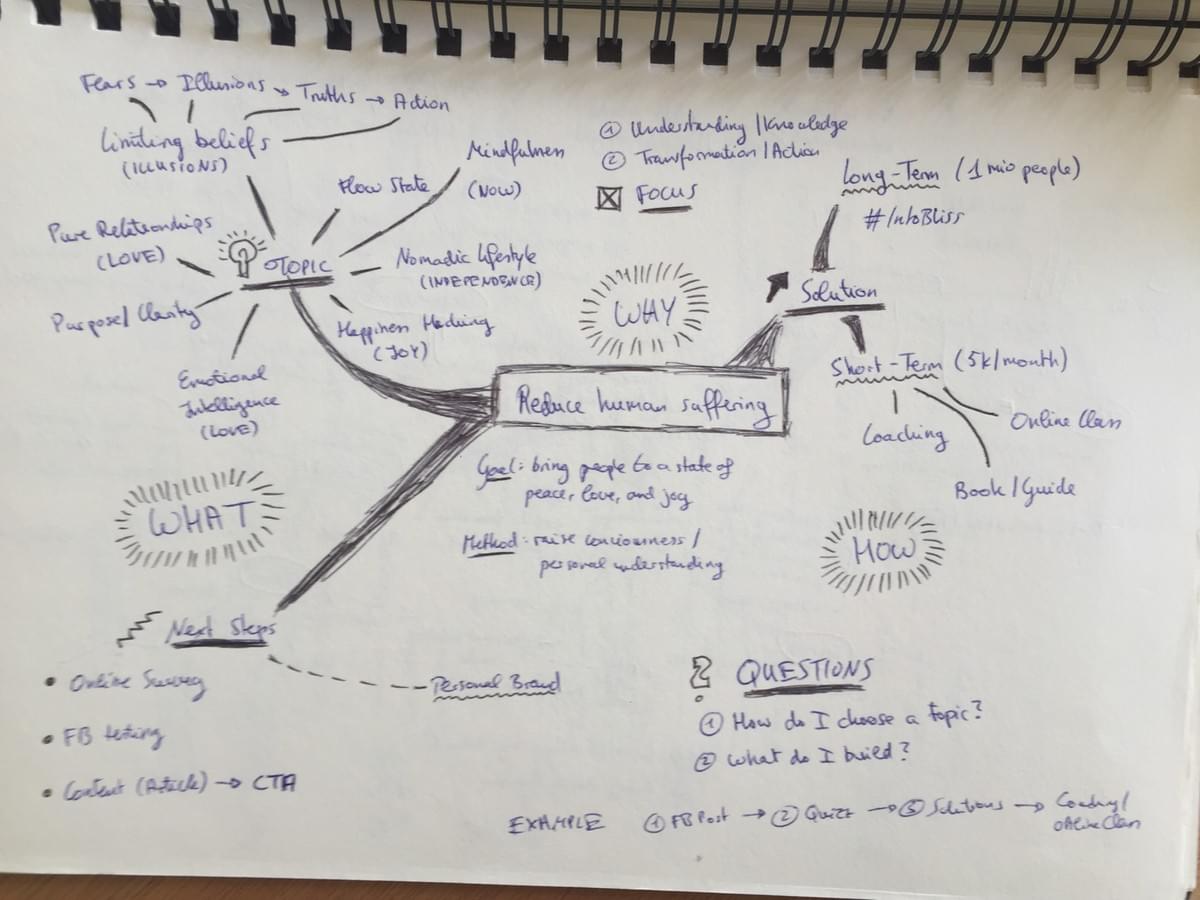 Fears → Illusions → Truths → Action
Limiting beliefs
(ILLUSIONS)
Pure Relationships
(LOVE)
Purpose/Clarity
Emotional
Intelligence
(LOVE)
TOPIC
Flow State
Mindfulness
(NOW)
Nomadic Lifestyle
(INDEPENDENCE)
Happiness Hacking
(JOY)
WHAT
① Understanding/Knowledge
② Transformation/Action
FOCUS
WHY
Reduce human suffering
Goal: bring people to a state of
peace, love, and joy
Method: raise conciousness/
personal understanding
Solution
Long-Term (1 mio people)
#IntoBliss
Short-Term (5k/month)
Coaching
Online Class
Book/Guide
HOW
Next Steps
• Online Survey
• FB testing
• Content (Article) → CTA
Personal Brand
? QUESTIONS
① How do I choose a topic?
② What do I build?
EXAMPLE ① FB Post → ② Quizz → ③ Solutions → Coaching/
Online Class